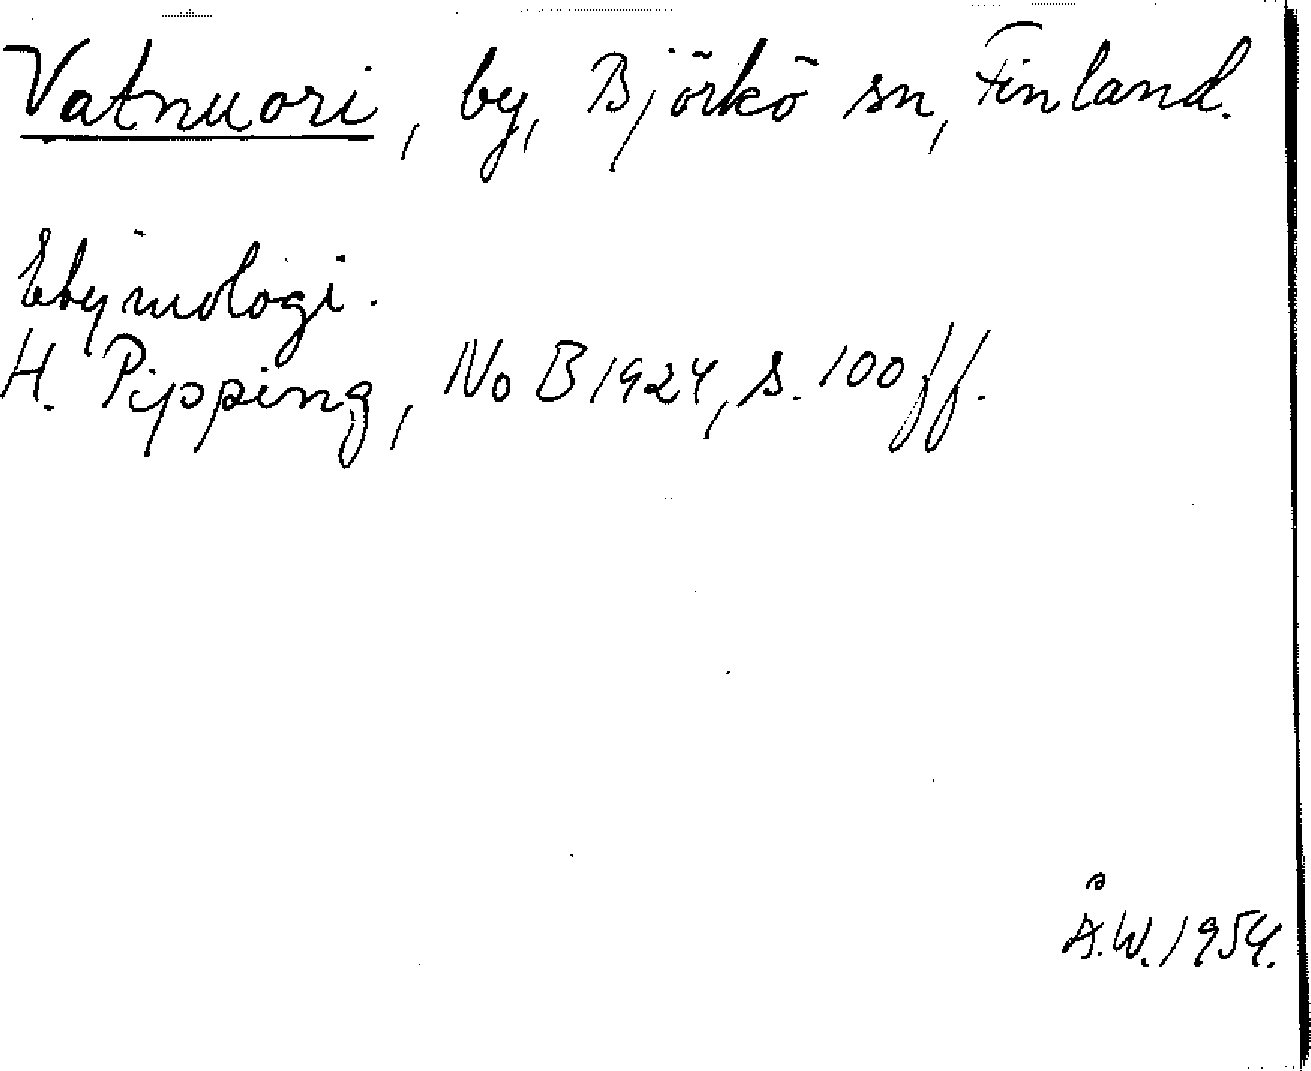 Vatnuori, by, Björkö sn, Finland.
Etymologi.
H. Pipping, NoB 1924, s. 100 ff.
Å.W. 1954.